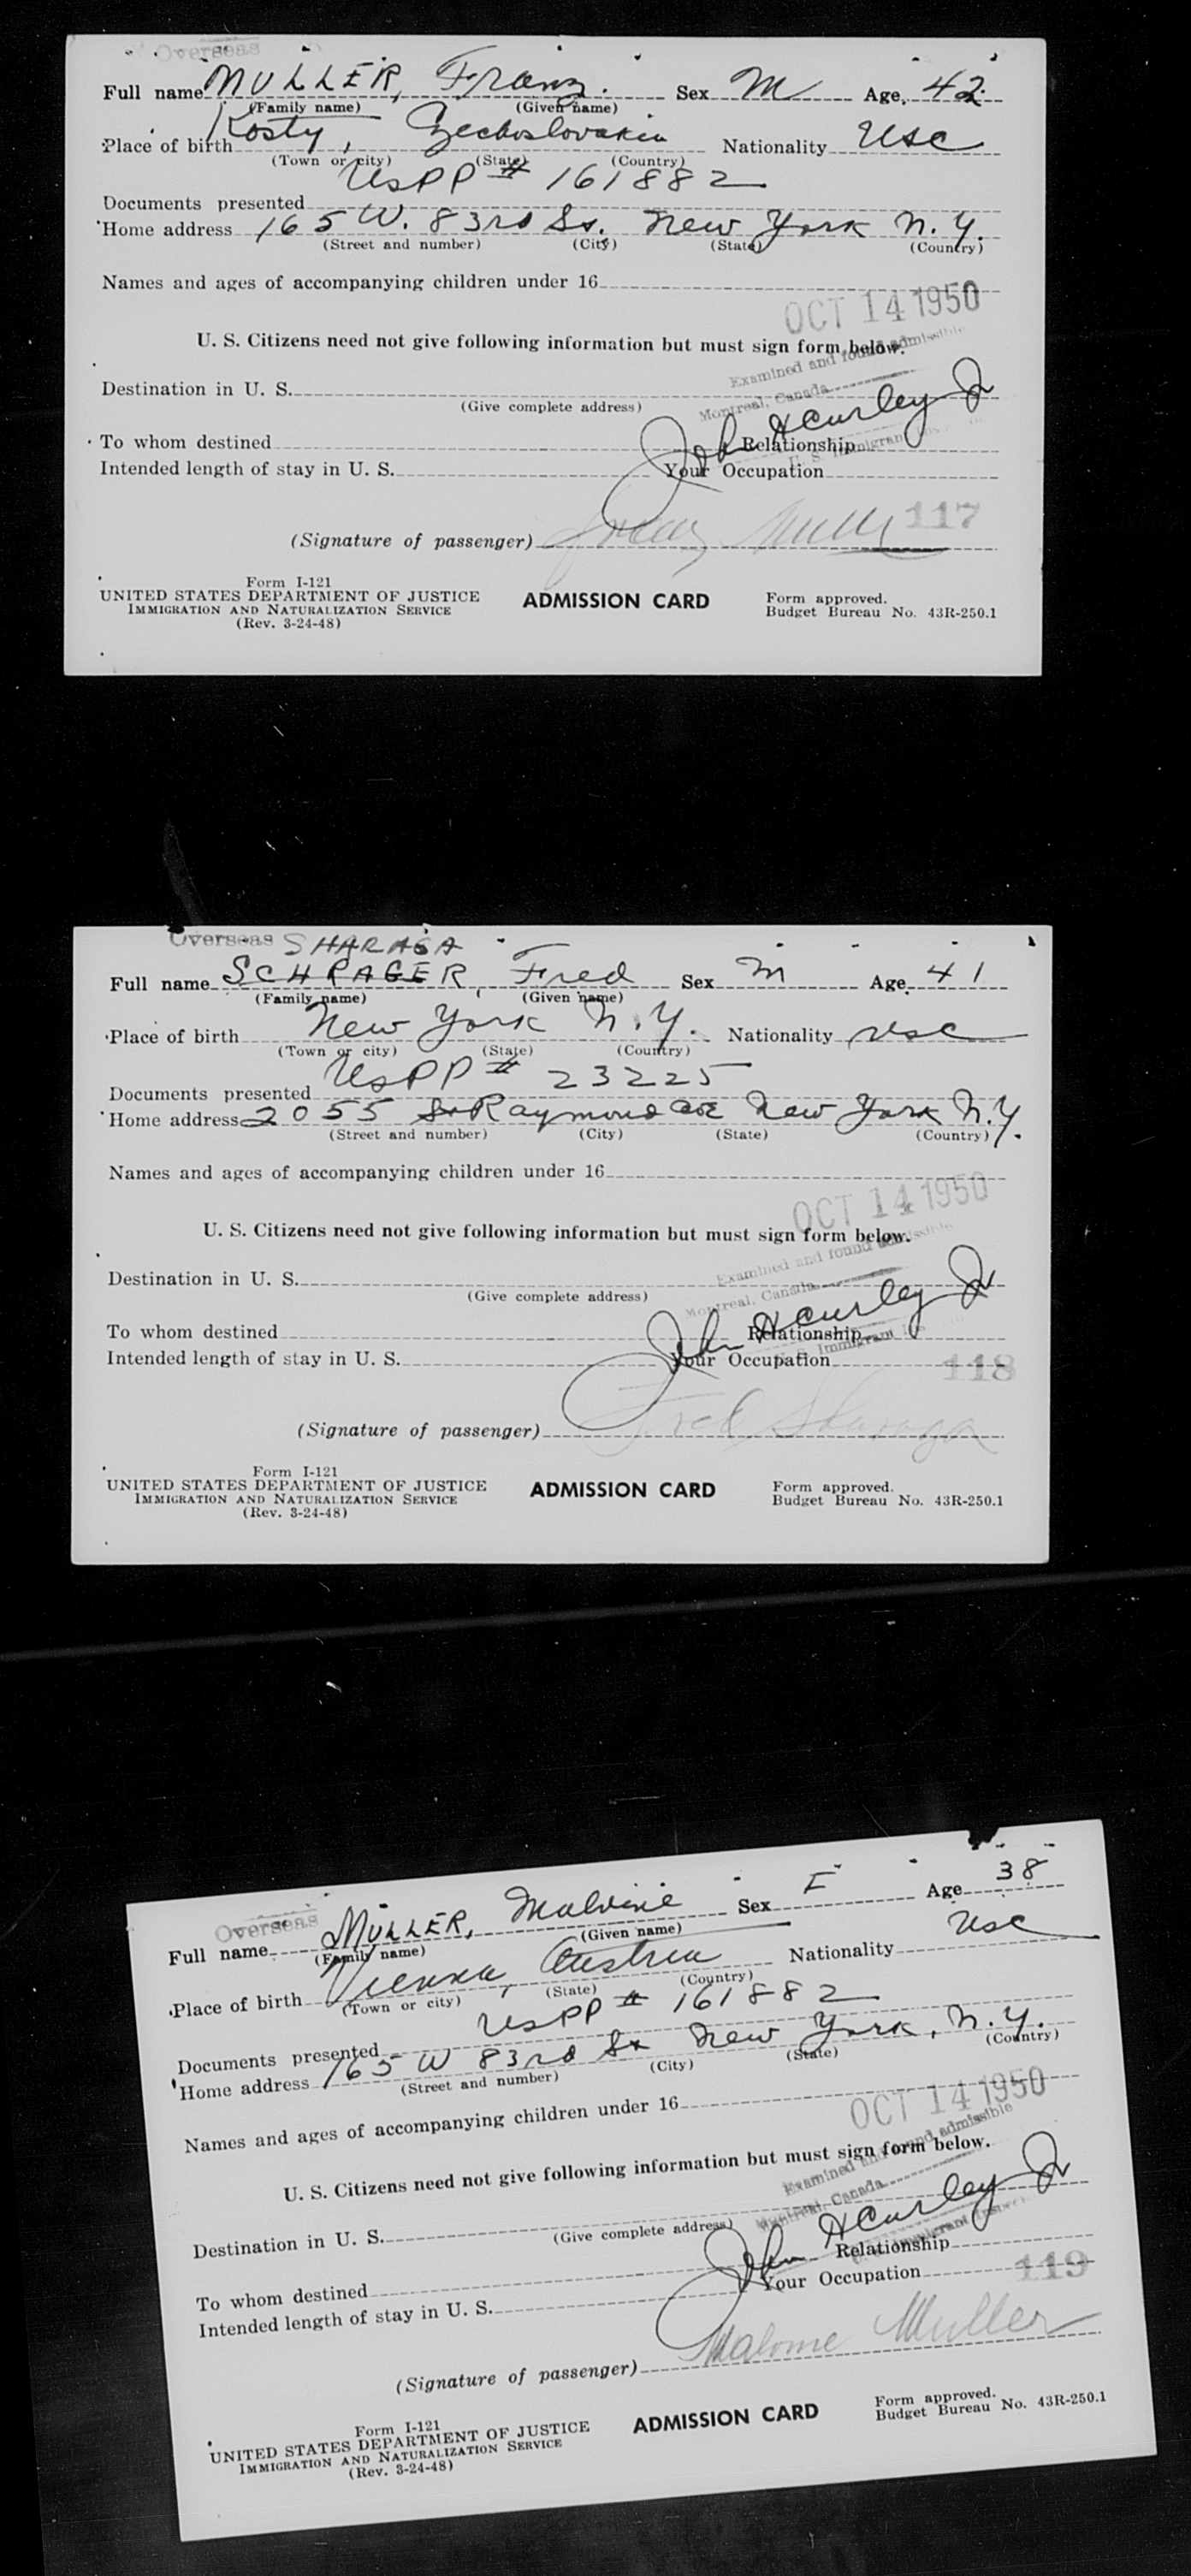 Overseas
Full name MULLER, Franz. Sex M Age 42
(Family name) (Given name)
Place of birth Kosty, Czechoslovakia Nationality USC
(Town or city) (State) (Country)
Documents presented USPP # 161882
Home address 165 W. 83rd St. New York N.Y.
(Street and number) (City) (State) (Country)
Names and ages of accompanying children under 16
OCT 14 1950
U. S. Citizens need not give following information but must sign form below.
Examined and found admissible
Destination in U. S.
(Give complete address)
Montreal, Canada
John H Curley Jr
To whom destined Relationship
U. S. Immigrant
Intended length of stay in U. S. Your Occupation
117
(Signature of passenger) Franz Muller
Form I-121
UNITED STATES DEPARTMENT OF JUSTICE
IMMIGRATION AND NATURALIZATION SERVICE
(Rev. 3-24-48)
ADMISSION CARD
Form approved.
Budget Bureau No. 43R-250.1
Overseas SHARAGA
Full name SCHRAGER, Fred Sex M Age 41
(Family name) (Given name)
Place of birth New York N.Y. Nationality USC
(Town or city) (State) (Country)
Documents presented USPP # 23225
Home address 2055 St Raymond ave New York N.Y.
(Street and number) (City) (State) (Country)
Names and ages of accompanying children under 16
OCT 14 1950
U. S. Citizens need not give following information but must sign form below.
Examined and found admissible
Destination in U. S.
(Give complete address)
Montreal, Canada
John H Curley Jr
To whom destined Relationship
Immigrant
Intended length of stay in U. S. Your Occupation
118
(Signature of passenger) Fred Sharaga
Form I-121
UNITED STATES DEPARTMENT OF JUSTICE
IMMIGRATION AND NATURALIZATION SERVICE
(Rev. 3-24-48)
ADMISSION CARD
Form approved.
Budget Bureau No. 43R-250.1
Overseas
Full name MULLER, Malvine Sex F Age 38
(Family name) (Given name)
Place of birth Vienna, Austria Nationality USC
(Town or city) (State) (Country)
Documents presented USPP # 161882
Home address 165 W 83rd St New York, N.Y.
(Street and number) (City) (State) (Country)
Names and ages of accompanying children under 16
OCT 14 1950
U. S. Citizens need not give following information but must sign form below.
Examined and found admissible
Destination in U. S.
(Give complete address)
Montreal, Canada
John H Curley Jr
To whom destined Relationship
Immigrant
Intended length of stay in U. S. Your Occupation
119
(Signature of passenger) Muller
Form I-121
UNITED STATES DEPARTMENT OF JUSTICE
IMMIGRATION AND NATURALIZATION SERVICE
(Rev. 3-24-48)
ADMISSION CARD
Form approved.
Budget Bureau No. 43R-250.1